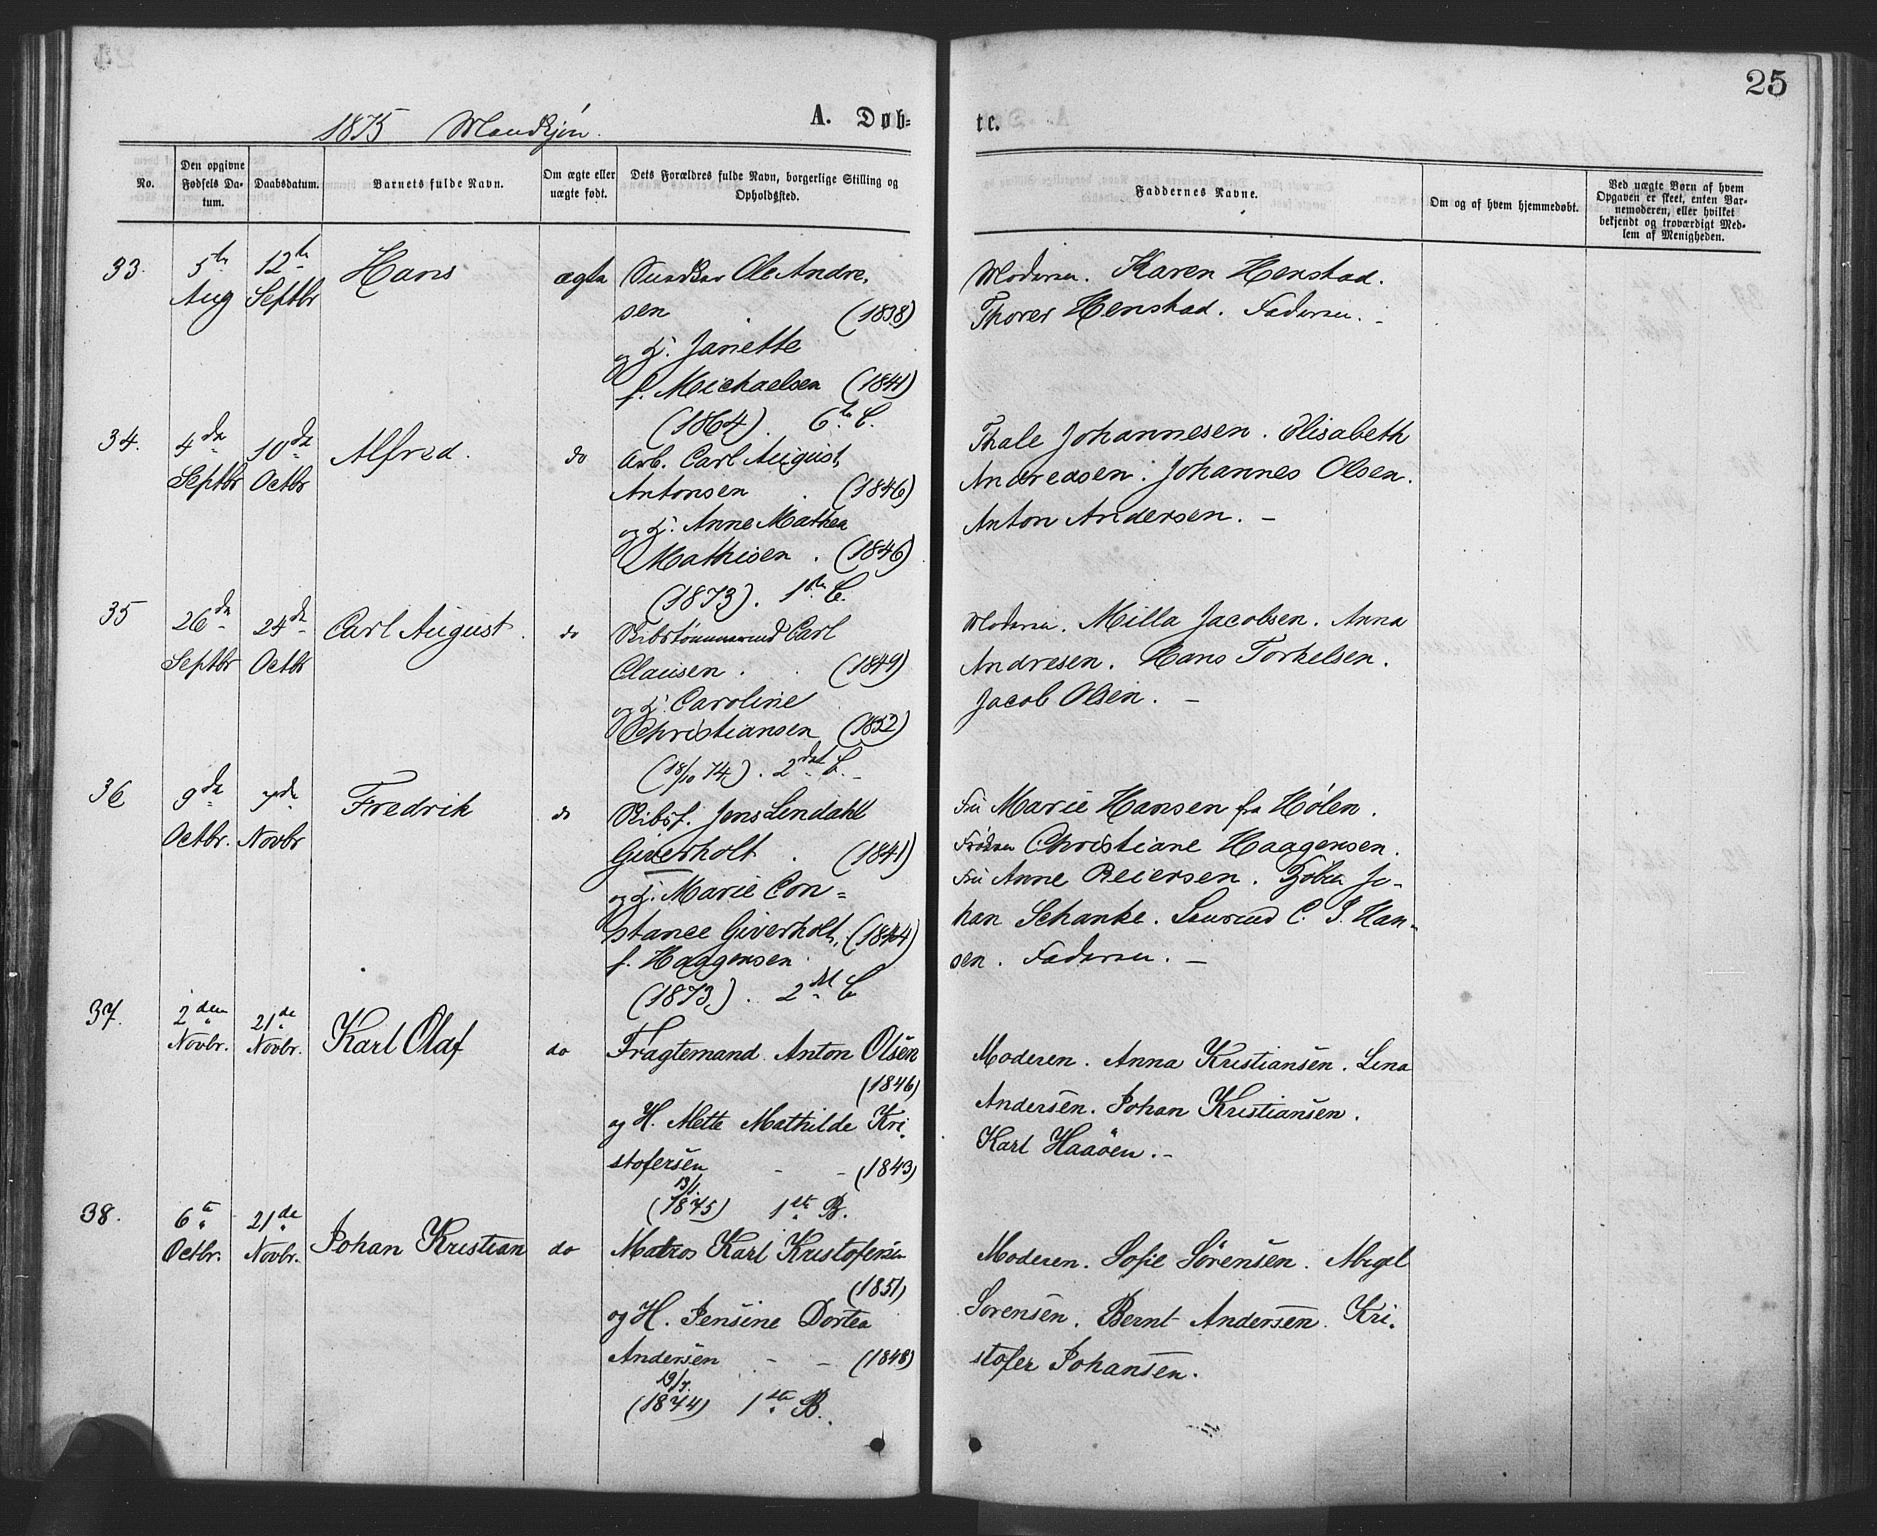 25
1875 Mandkjøn.
A. Døb=
te.
No.
Den opgivne Fødsels Datum.
Daabsdatum.
Barnets fulde Navn.
Om ægte eller uægte født.
Dets Forældres fulde Navn, borgerlige Stilling og Opholdssted.
Faddernes Navne.
Om og af hvem hjemmedøbt.
Ved uægte Børn af hvem Opgaven er skeet, enten Barnemoderen, eller hvilket bekjendt og troværdigt Medlem af Menigheden.
33.
5te Aug
12te Septbr
Hans
ægte
Snedker Ole Andre-
sen (1838)
og H. Janette
f. Michaelsen (1841)
(1864). 6te B.
Moderen. Karen Henstad.
Thorer Henstad. Faderen. –
34.
4de Septbr
10de Octbr
Alfred.
do
Arb. Carl August
Antonsen . (1846)
og H. Anne Mathea
Mathisen . (1846)
(1873). 1ste B.
Thale Johannesen. Elisabeth
Andreasen. Johannes Olsen.
Anton Andersen. –
35
26de Septbr
24de Octbr
Carl August.
do
Skibstømmermd Carl
Clausen . . (1849)
og H. Caroline
Christiansen (1852)
(18/10 74). 2det B. –
Moderen. Milla Jacobsen. Anna
Andresen. Hans Torkelsen.
Jacob Olsen. –
36
9de Octbr.
7de Novbr
Fredrik
do
Skibsf. Jens Lendahl
Giverholt . (1841)
og H. Marie Con=
stance Giverholt, (1844)
f. Haagensen
(1873). 2det B
Fru Marie Hansen fra Hølen.
Frøken Christiane Haagensen.
Fru Anne Reiersen. Tjøbm Jo-
han Schanke. Lensmd C. J. Han-
sen. Faderen. –
37.
2den Novbr.
21de Novbr.
Karl Olaf
do
Fragtemand Anton Olsen
(1846)
og H. Mette Mathilde Kri-
stofersen - - (1843)
13/1
(1875) 1ste B.
Moderen. Anna Kristiansen. Lina
Andersen. Johan Kristiansen.
Karl Haaöen. –
38.
6te Octbr.
21de Novbr.
Johan Kristian
do
Matros Karl Kristofersen
(1851)
og H. Jensine Dortea
Andersen - - (1848)
19/7
(1874) 1ste B.
Moderen. Sofie Sörensen.
Sorensen. Bernt Andersen. Kri-
stofer Johansen.